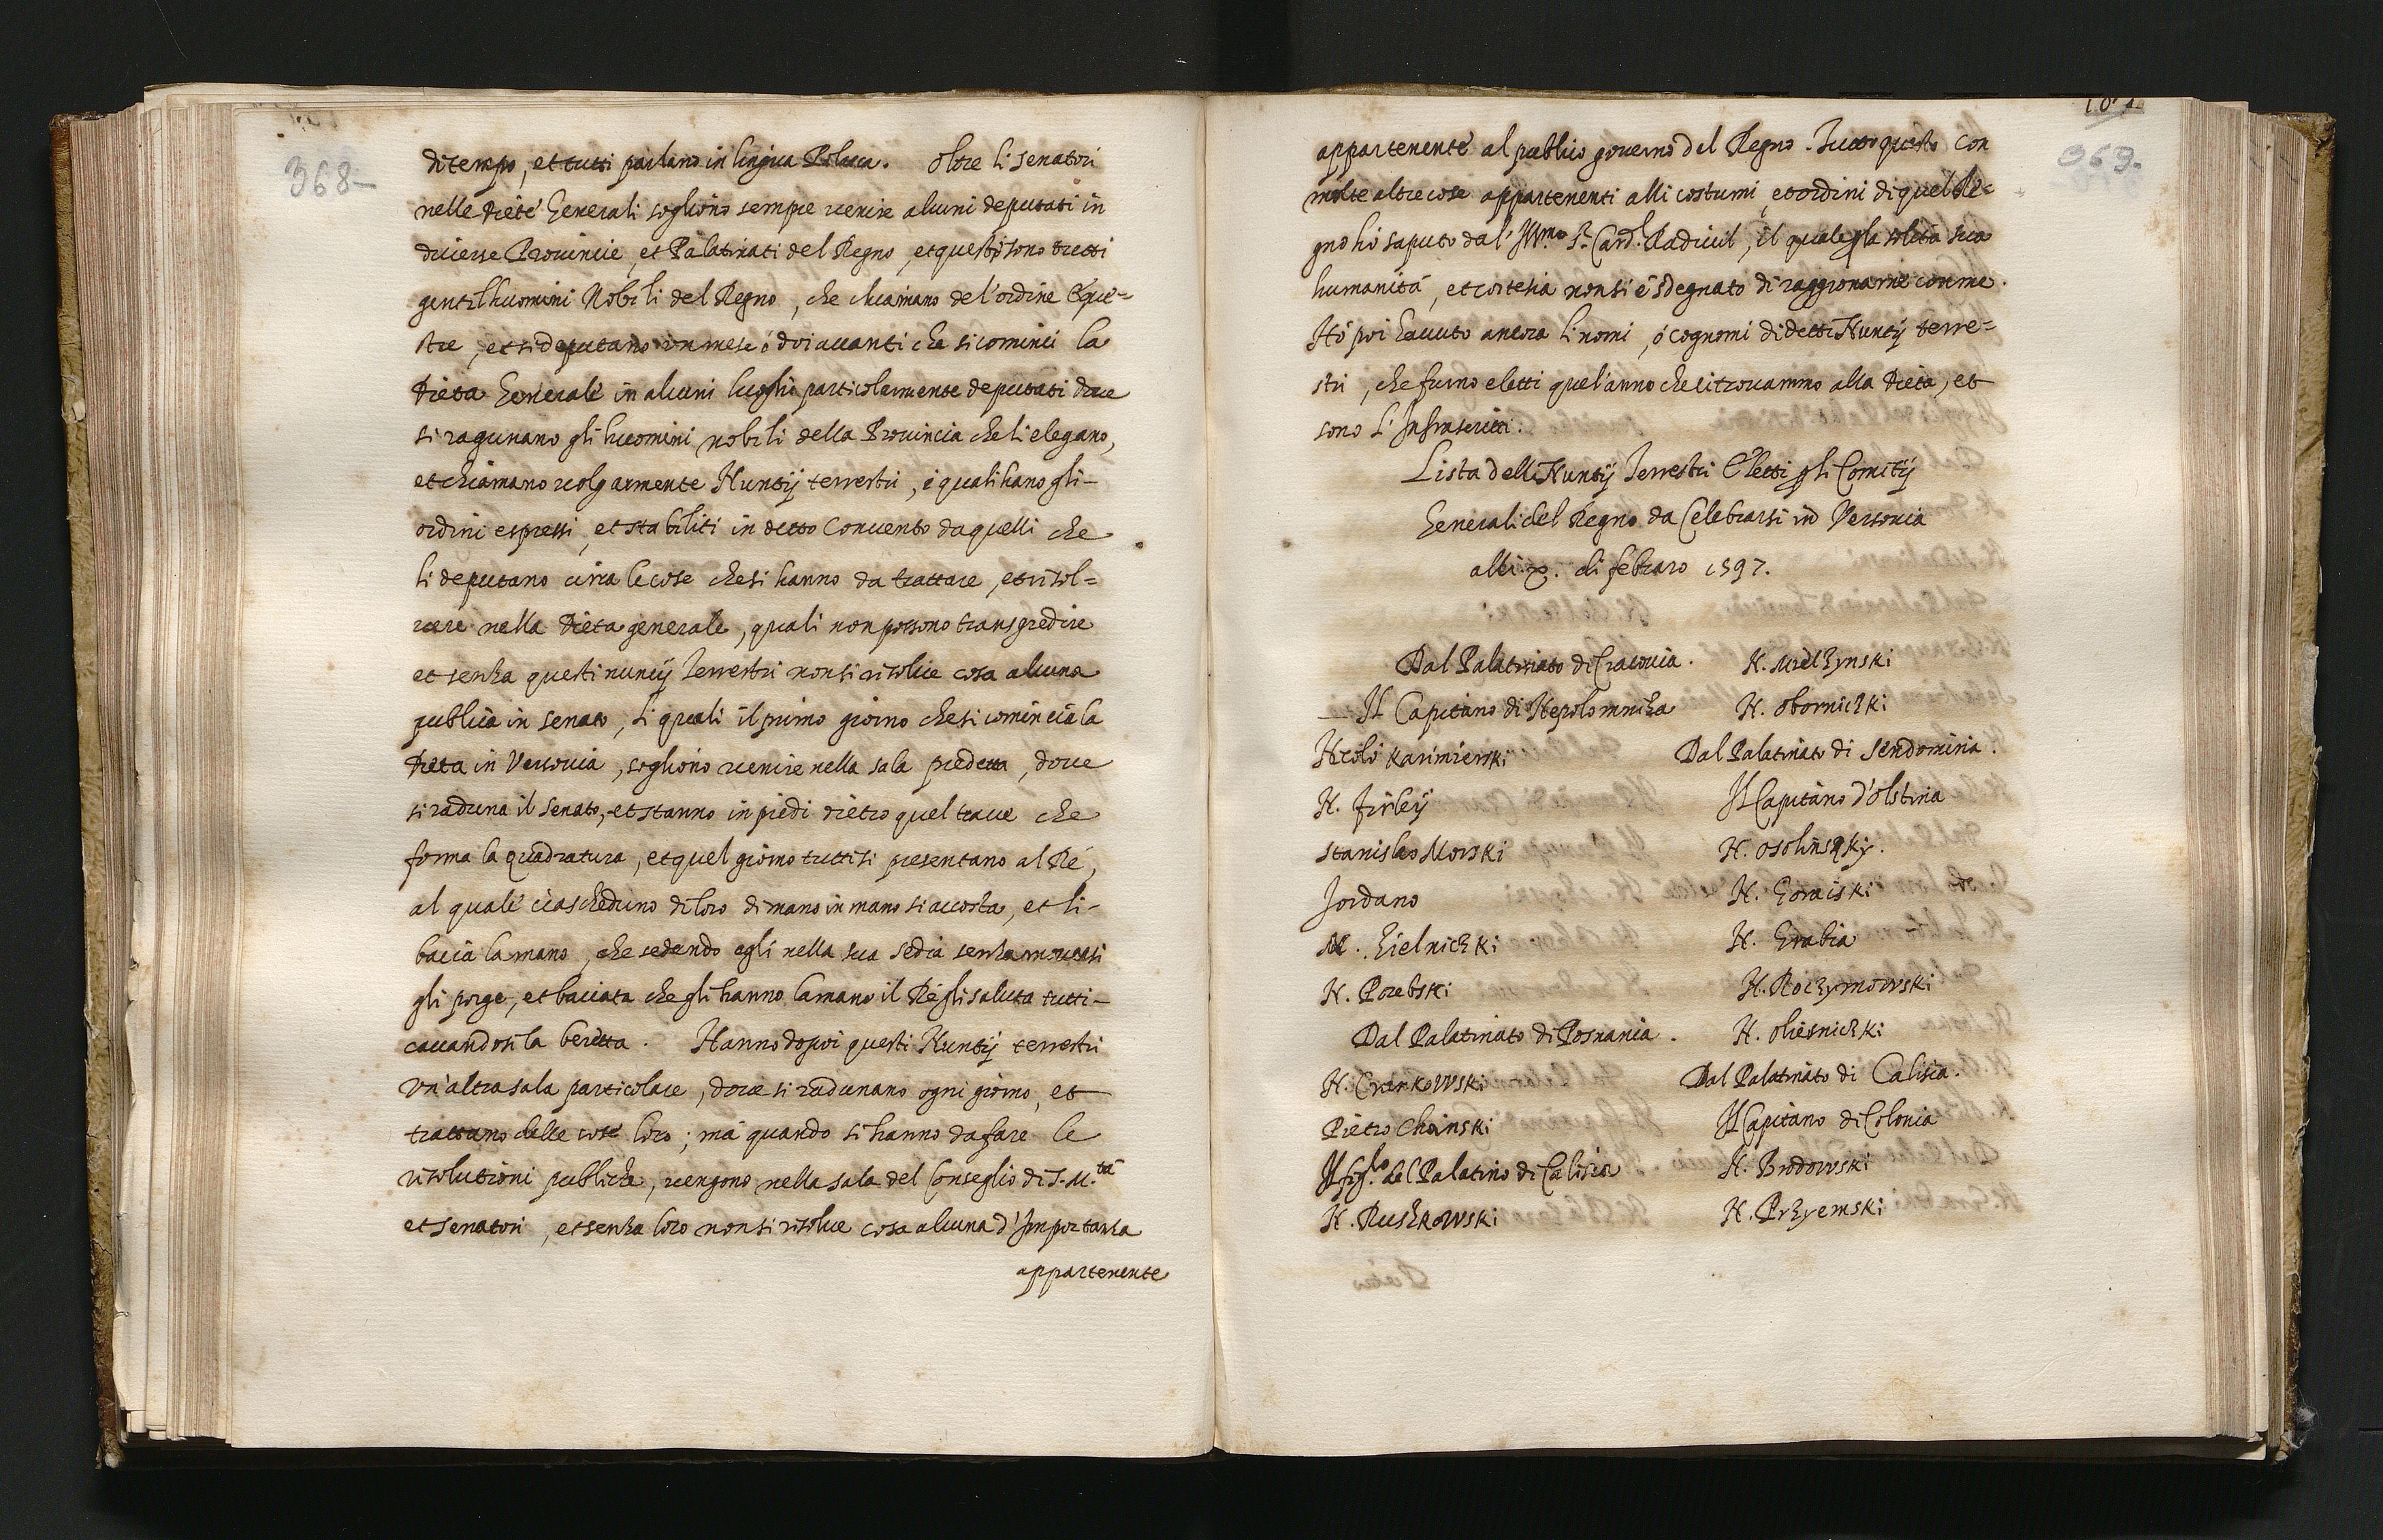 368
di tempo, et tutti parlano in lingua Polaca. Oltre li senatori
nelle Diete Generali sogliono sempre venire alcuni deputati in
diverse Provincie, et Palatinati del Regno, et questi sono tutti
gentilhuomini Nobili del Regno, che chiamano de l'ordine Eque=
stre, et si deputano un mese ó doi avanti che si cominci la
Dieta Generale in alcuni luoghi particolarmente deputati dove
si ragunano gli huomini nobili della Provincia che li elegano,
et chiamano volgarmente Nuntij terrestri, i quali hano gli-
ordini espressi, et stabiliti in detto Convento da quelli che
li deputano circa le cose che si hanno da trattare, et risol=
vere nella Dieta generale, quali non possono transgredire
et senza questi nuncij Terrestri non si risolve cosa alcuna
publica in senato, li quali il primo giorno che si comincia la
Dieta in Versovia, sogliono venire nella sala predetta, dove
si raduna il senato, et stanno in piedi dietro quel trave che
forma la quadratura, et quel giorno tutti si presentano al Ré,
al quale ciascheduno di loro di mano in mano si accosta, et li-
bacia la mano, che sedendo egli nella sua sedia senza moversi
gli porge, et baciata che gli hanno la mano il Ré gli saluta tutti-
cavandosi la beretta. Hanno dopoi questi Nuntij terrestri
un'altra sala particolare, dove si radunano ogni giorno, et
trattano delle cose loro; má quando si hanno da fare le
risolutioni publiche, vengono nella sala del Conseglio di S. M.tá
et senatori, et senza loro non si risolve cosa alcuna d'Importanza
appartenente
369.
appartenente al publico governo del Regno. Tutto questo con
molte altre cose appartenenti alli costumi, et ordini di quel Re=
gno hó saputo dal' Ill.mo S.r Card.l Radivil, il quale p la solita sua
humanitá, et cortesia non si é sdegnato di raggionarne con me.
Hó poi havuto ancora li nomi, ó cognomi di detti Nuntij terre=
stri, che furno eletti quel'anno che ci trovammo alla Dieta, et
sono l'Infrascritti.
Lista delli Nuntij Terrestri Eletti p gli Comitij
Generali del Regno da Celebrarsi in Versovia
alli X. di febraro 1597.
Dal Palatinato di Cracovia.
Il Capitano di Nepolomniza
Nicoló Karimierski
N. Firleij
Stanislao Morski
Jordano
M. Zielnicki
N. Porebski
Dal Palatinato di Posnania.
N. Crankowski
Pietro Choinski
Il figl.o del Palatino di Calisia
N. Ruskowski
N. Mielzynski
N. Obornicki
Dal Palatinato di Sendomiria.
Il Capitano d'Olstina
N. Osolinsky.
N. Goraiski
N. Grabia
N. Roczymowski
N. Oliesnicki
Dal Palatinato di Calisia.
Il Capitano di Colonia
N. Brodowski
N. Przyemski